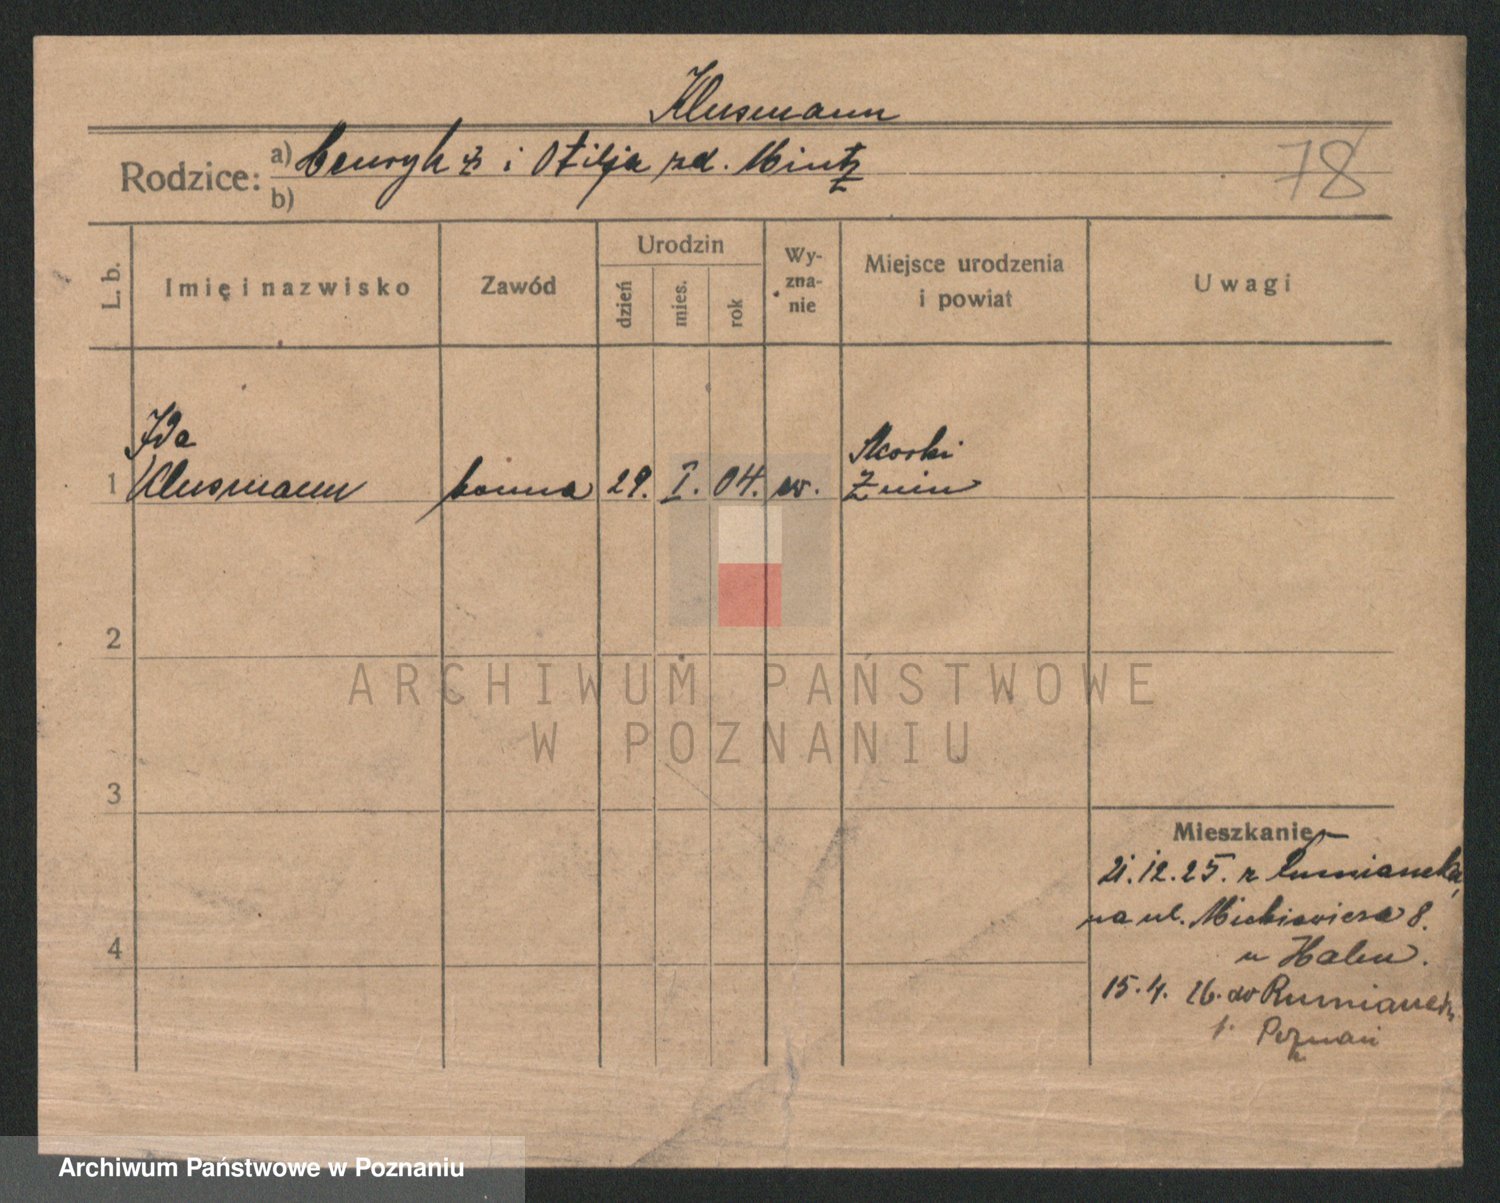 Klusmann
Rodzice: a) Henryk ż i Otilja zd. Mintz
b)
78
L. b.
Imię i nazwisko
Zawód
Urodzin
dzień
mies.
rok
Wy-
zna-
nie
Miejsce urodzenia
i powiat
Uwagi
Ida
1 Klusmann bonna 29. I. 04. ew. Skorki
Żnin
2
3
4
Mieszkanie
21.12.25. z Rumianek
na ul. Mickiewicza 8.
u Halen.
15.4. 26. do Rumianek
p. Poznań
ARCHIWUM PAŃSTWOWE
W POZNANIU
Archiwum Państwowe w Poznaniu